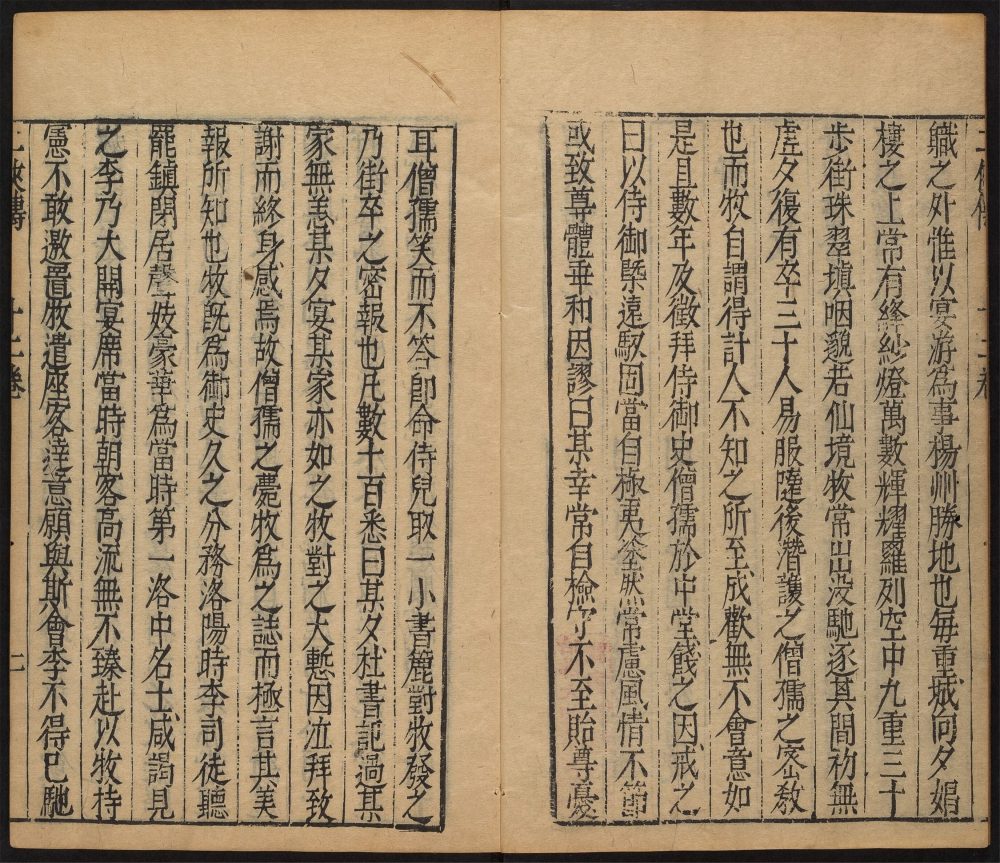 職之外惟以宴游為事楊州勝地也每重城向夕娼
樓之上常有絳紗燈萬數輝耀羅列空中九重三十
步街珠翠塡咽邈若仙境牧常出没馳逐其間初無
虗夕復有卒三十人易服隨後潛護之僧孺之密敎
也而牧自謂得計人不知之所至成歡無不會意如
是且數年及徵拜侍御史僧孺於中堂餞之因戒之
曰以侍御槩遠馭固當自極夷然常慮風情不節
或致尊體乖和因謬曰某幸常自檢守不至貽尊憂
耳僧孺笑而不答卽命侍兒取一小書簏對牧發之
乃街卒之密報也凡數十百悉曰某夕杜書記過某
家無恙某夕宴某家亦如之牧對之大慙因泣拜致
謝而終身感焉故僧孺之薨牧為之誌而極言其美
報所知也牧旣為御史久之分務洛陽時李司徒聽
罷鎮閉居聲妓豪華為當時第一洛中名士咸謁見
之李乃大開宴席當時朝客高流無不臻赴以牧持
憲不敢邀置牧遣座客達意願與斯會李不得已馳